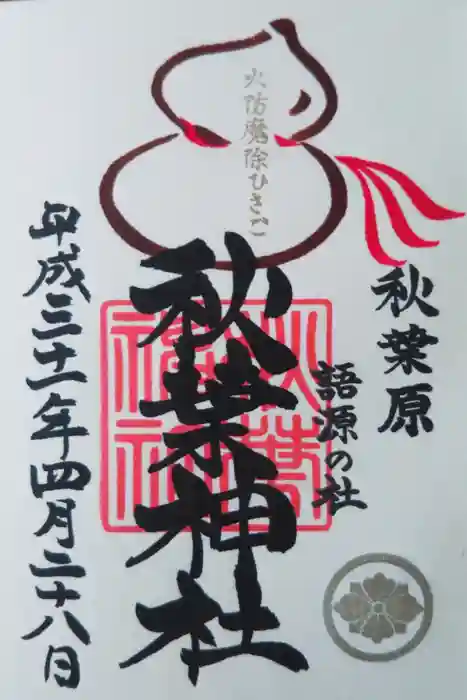 秋葉原
語源の社
火防魔除ひさご
秋葉神社
秋葉神社
平成三十一年四月二十八日